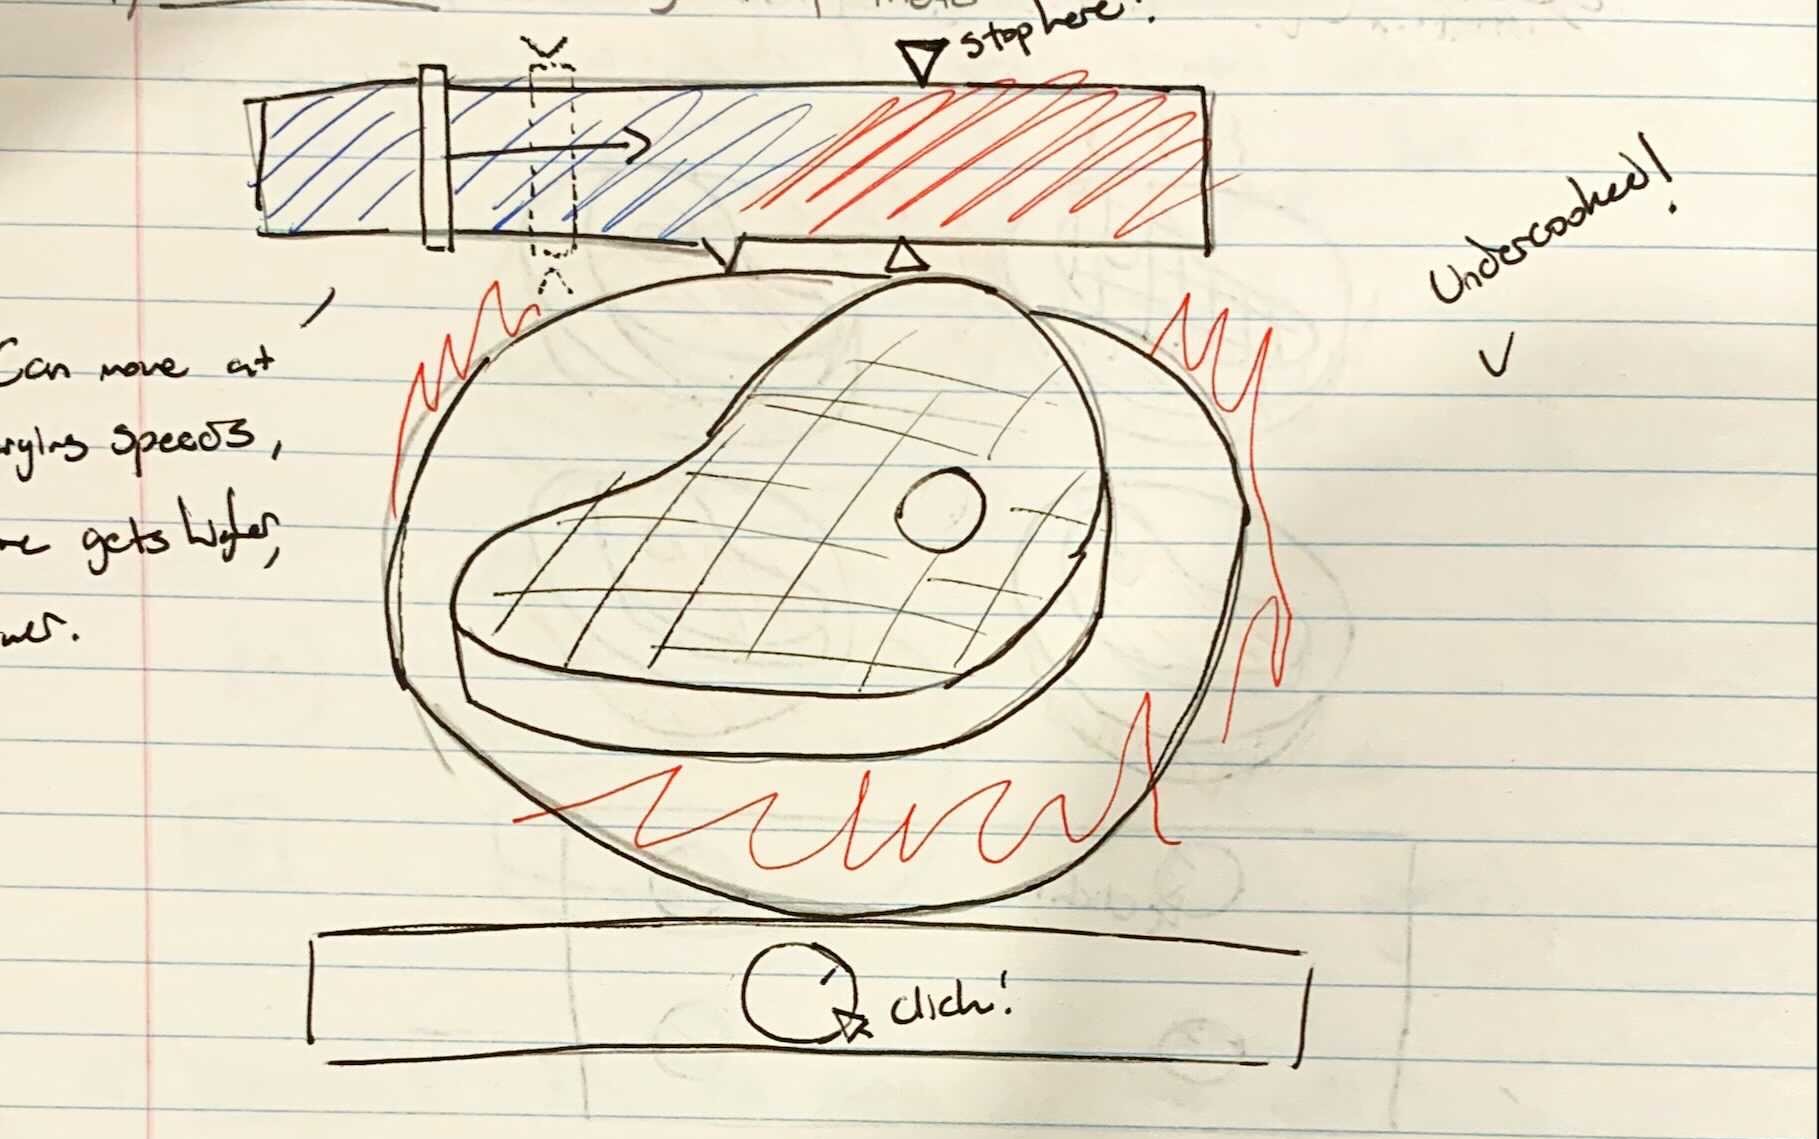 stop here!
Undercooked!
Can move at
speeds,
gets higher,
click!